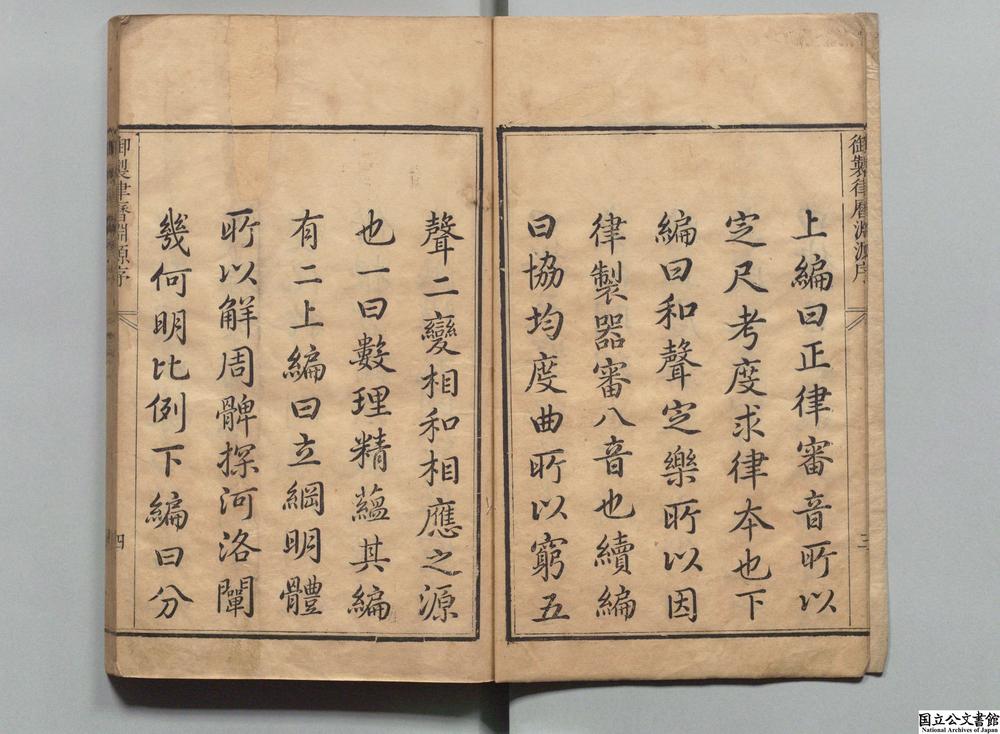 御製律曆淵源序
三
上編曰正律審音所以
定尺考度求律本也下
編曰和聲定樂所以因
律製器審八音也續編
曰協均度曲所以窮五
聲二變相和相應之源
也一曰數理精蘊其編
有二上編曰立綱明體
所以解周髀探河洛闡
幾何明比例下編曰分
御製律曆淵源序
四
国立公文書館
National Archives of Japan